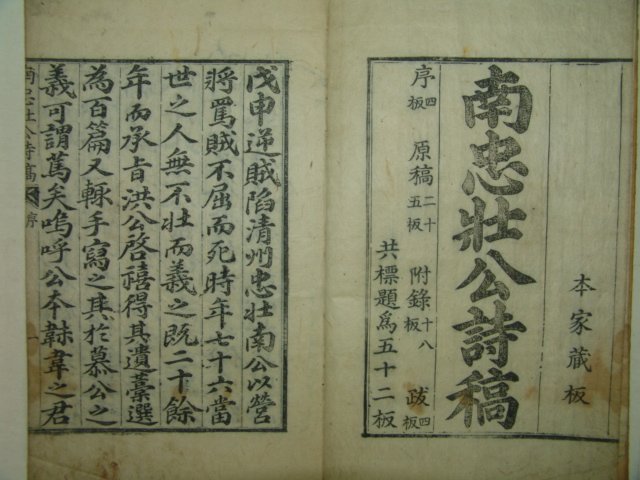 本家藏板
南忠壯公詩稿
序四板 原稿二十五板 附錄十八板 跋四板
共標題爲五十二板
戊申逆賊陷清州忠壯南公以營
將罵賊不屈而死時年七十六當
世之人無不壯而義之旣二十餘
年而承旨洪公啓禧得其遺藁選
為百篇又輒手寫之其於慕公之
義可謂篤矣嗚呼公本韎韋之君
南忠壯公詩稿 序 一